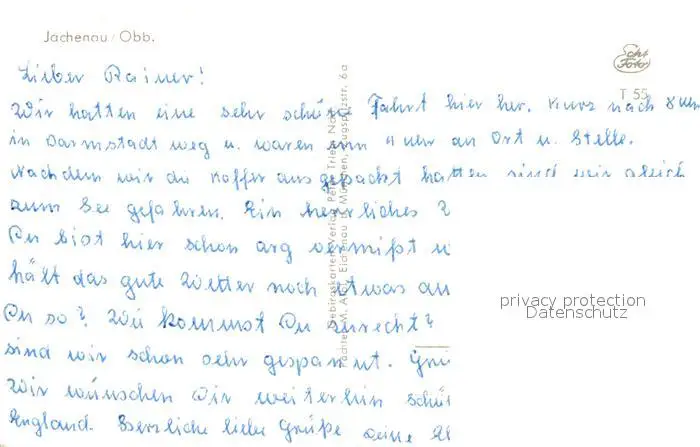 Jachenau / Obb.
Echt Foto
T 55
Lieber Rainer!
Wir hatten eine sehr schöne Fahrt hier her. Kurz nach 8 Uhr
in Darmstadt weg u. waren um 4 Uhr an Ort u. Stelle.
Nachdem wir die Koffer ausgepackt hatten sind wir gleich
zum See gefahren. Ein herrliches
Du bist hier schon arg vermißt u
hält das gute Wetter noch etwas an
Du so? Wie kommst Du zurecht?
sind wir schon sehr gespannt. Grü
Wir wünschen Dir weiterhin schö
England. Herzliche liebe Grüße Deine
Gebirgskarten-Verlag Peter Triem Nachf.
München, Augsburgerstr. 6a
privacy protection
Datenschutz